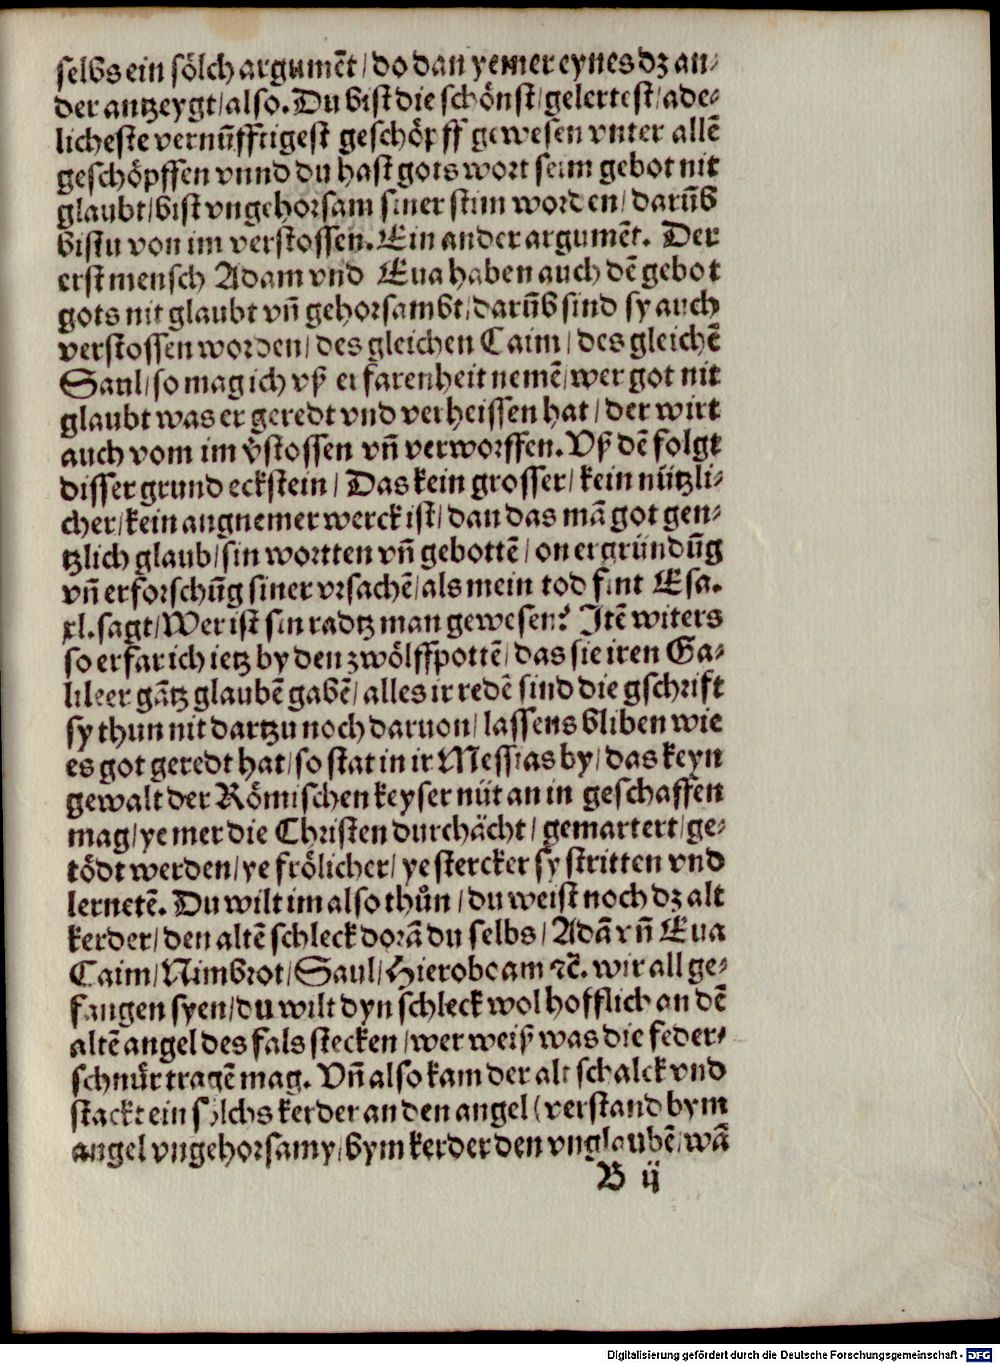 selbs ein sölch argumēt / do dan yemer eynes dz an⸗
der antzeygt / also. Du bist die schönst / gelertest / ade⸗
licheste vernūfftigest geschöpff gewesen vnter allē
geschöpffen vnnd du hast gots wort seim gebot nit
glaubt / bist vngehorsam siner stim worden / darūb
bistu von im verstossen. Ein ander argumēt. Der
erst mensch Adam vnd Eua haben auch dē gebot
gots nit glaubt vñ gehorsambt / darūb sind sy auch
verstossen worden / des gleichen Caim / des gleichē
Saul / so mag ich vß erfarenheit nemē / wer got nit
glaubt was er geredt vnd verheissen hat / der wirt
auch vom im v̄stossen vñ verworffen. Vß dē folgt
disser grund eckstein / Das kein grosser / kein nützli⸗
cher / kein angnemer werck ist / dan das mā got gen⸗
tzlich glaub / sin wortten vñ gebottē / on ergründūg
vñ erforschūg siner vrsachē / als mein tod fint Esa.
xl. sagt / Wer ist sin radtz man gewesen? Itē witers
so erfar ich ietz by den zwölffpottē / das sie iren Ga⸗
lileer gātz glaubē gabē / alles ir redē sind die gschrift
sy thun nit dartzu noch daruon / lassens bliben wie
es got geredt hat / so stat in ir Messias by / das keyn
gewalt der Römischen keyser nüt an in geschaffen
mag / ye mer die Christen durchächt / gemartert / ge⸗
tödt werden / ye frölicher / ye stercker sy stritten vnd
lernetē. Du wilt im also thůn / du weist noch dz alt
kerder / den altē schleck dorā du selbs / Adā vñ Eua
Caim / Nimbrot / Saul / Hieroboam ⁊c̄. wir all ge⸗
fangen syen / du wilt dyn schleck wol hofflich an dē
altē angel des fals stecken / wer weiß was die feder⸗
schnůr tragē mag. Vñ also kam der alt schalck vnd
stackt ein sölchs kerder an den angel (verstand bym
angel vngehorsamy / bym kerder den vnglaubē / wā
B ij
Digitalisierung gefördert durch die Deutsche Forschungsgemeinschaft - DFG